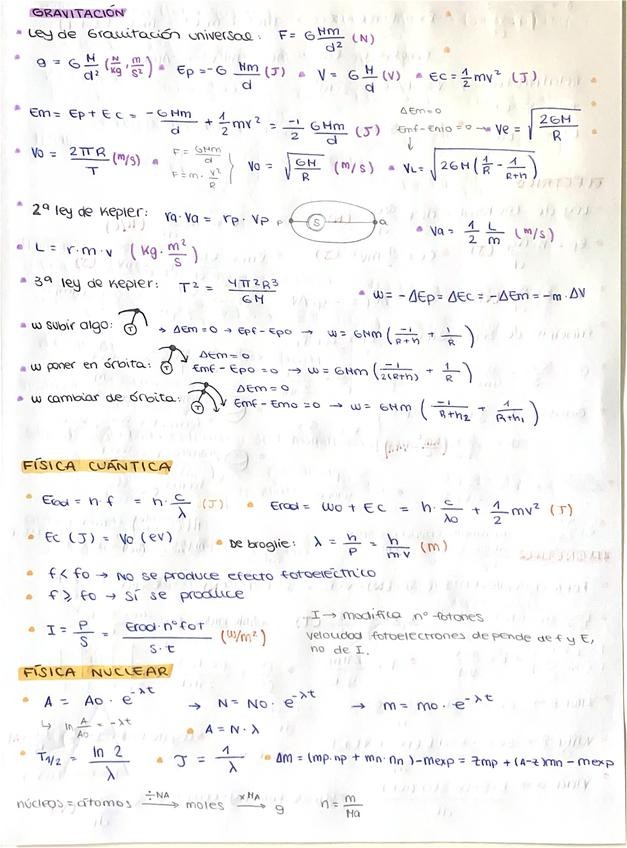 GRAVITACIÓN
• Ley de Gravitación universal: F = G Mm/d² (N)
• g = G M/d² (N/kg, m/s²) • Ep = -G Mm/d (J) • V = G M/d (V) • Ec = 1/2 mv² (J)
• Em = Ep + Ec = -GMm/d + 1/2 mv² = -1/2 GMm/d (J) ΔEm=0 Emf - Emo = 0 → Ve = √(2GM/R)
• Vo = 2πR/T (m/s) • F = GMm/d F = m · v²/R } Vo = √(GM/R) (m/s) • VL = √(2GM(1/R - 1/(R+h)))
• 2ª ley de Kepler: ra·Va = rp·Vp P S a • Va = 1/2 L/m (m/s)
• L = r·m·v (Kg· m²/s)
• 3ª ley de Kepler: T² = 4π²R³/GM • W = -ΔEp = ΔEc = -ΔEm = -m·ΔV
• W subir algo: T → ΔEm = 0 → Epf - Epo → W = GMm (-1/(R+h) + 1/R)
• W poner en órbita: T ΔEm=0 Emf - Epo = 0 → W = GMm (-1/(2(R+h)) + 1/R)
• W cambiar de órbita: T ΔEm=0 Emf - Emo = 0 → W = GMm (-1/(R+h₂) + 1/(R+h₁))
FÍSICA CUÁNTICA
• Erad = h·f = h· c/λ (J) • Erad = Wo + Ec = h· c/λo + 1/2 mv² (J)
• Ec (J) = Vo (eV) • De broglie: λ = h/P = h/mv (m)
• f < fo → No se produce efecto fotoeléctrico
• f ⩾ fo → Sí se produce
• I = P/S = Erad·nº fot/S·t (W/m²)
I → modifica nº fotones
velocidad fotoelectrones depende de f y E,
no de I.
FÍSICA NUCLEAR
• A = Ao · e^-λt → N = No · e^-λt → m = mo · e^-λt
↳ ln A/Ao = -λt • A = N·λ
• T1/2 = ln 2/λ • J = 1/λ • Δm = (mp·np + mn·nn) - mexp = Zmp + (A-Z)mn - mexp
núcleos = átomos ÷NA → moles ×MA → g n = m/Ma